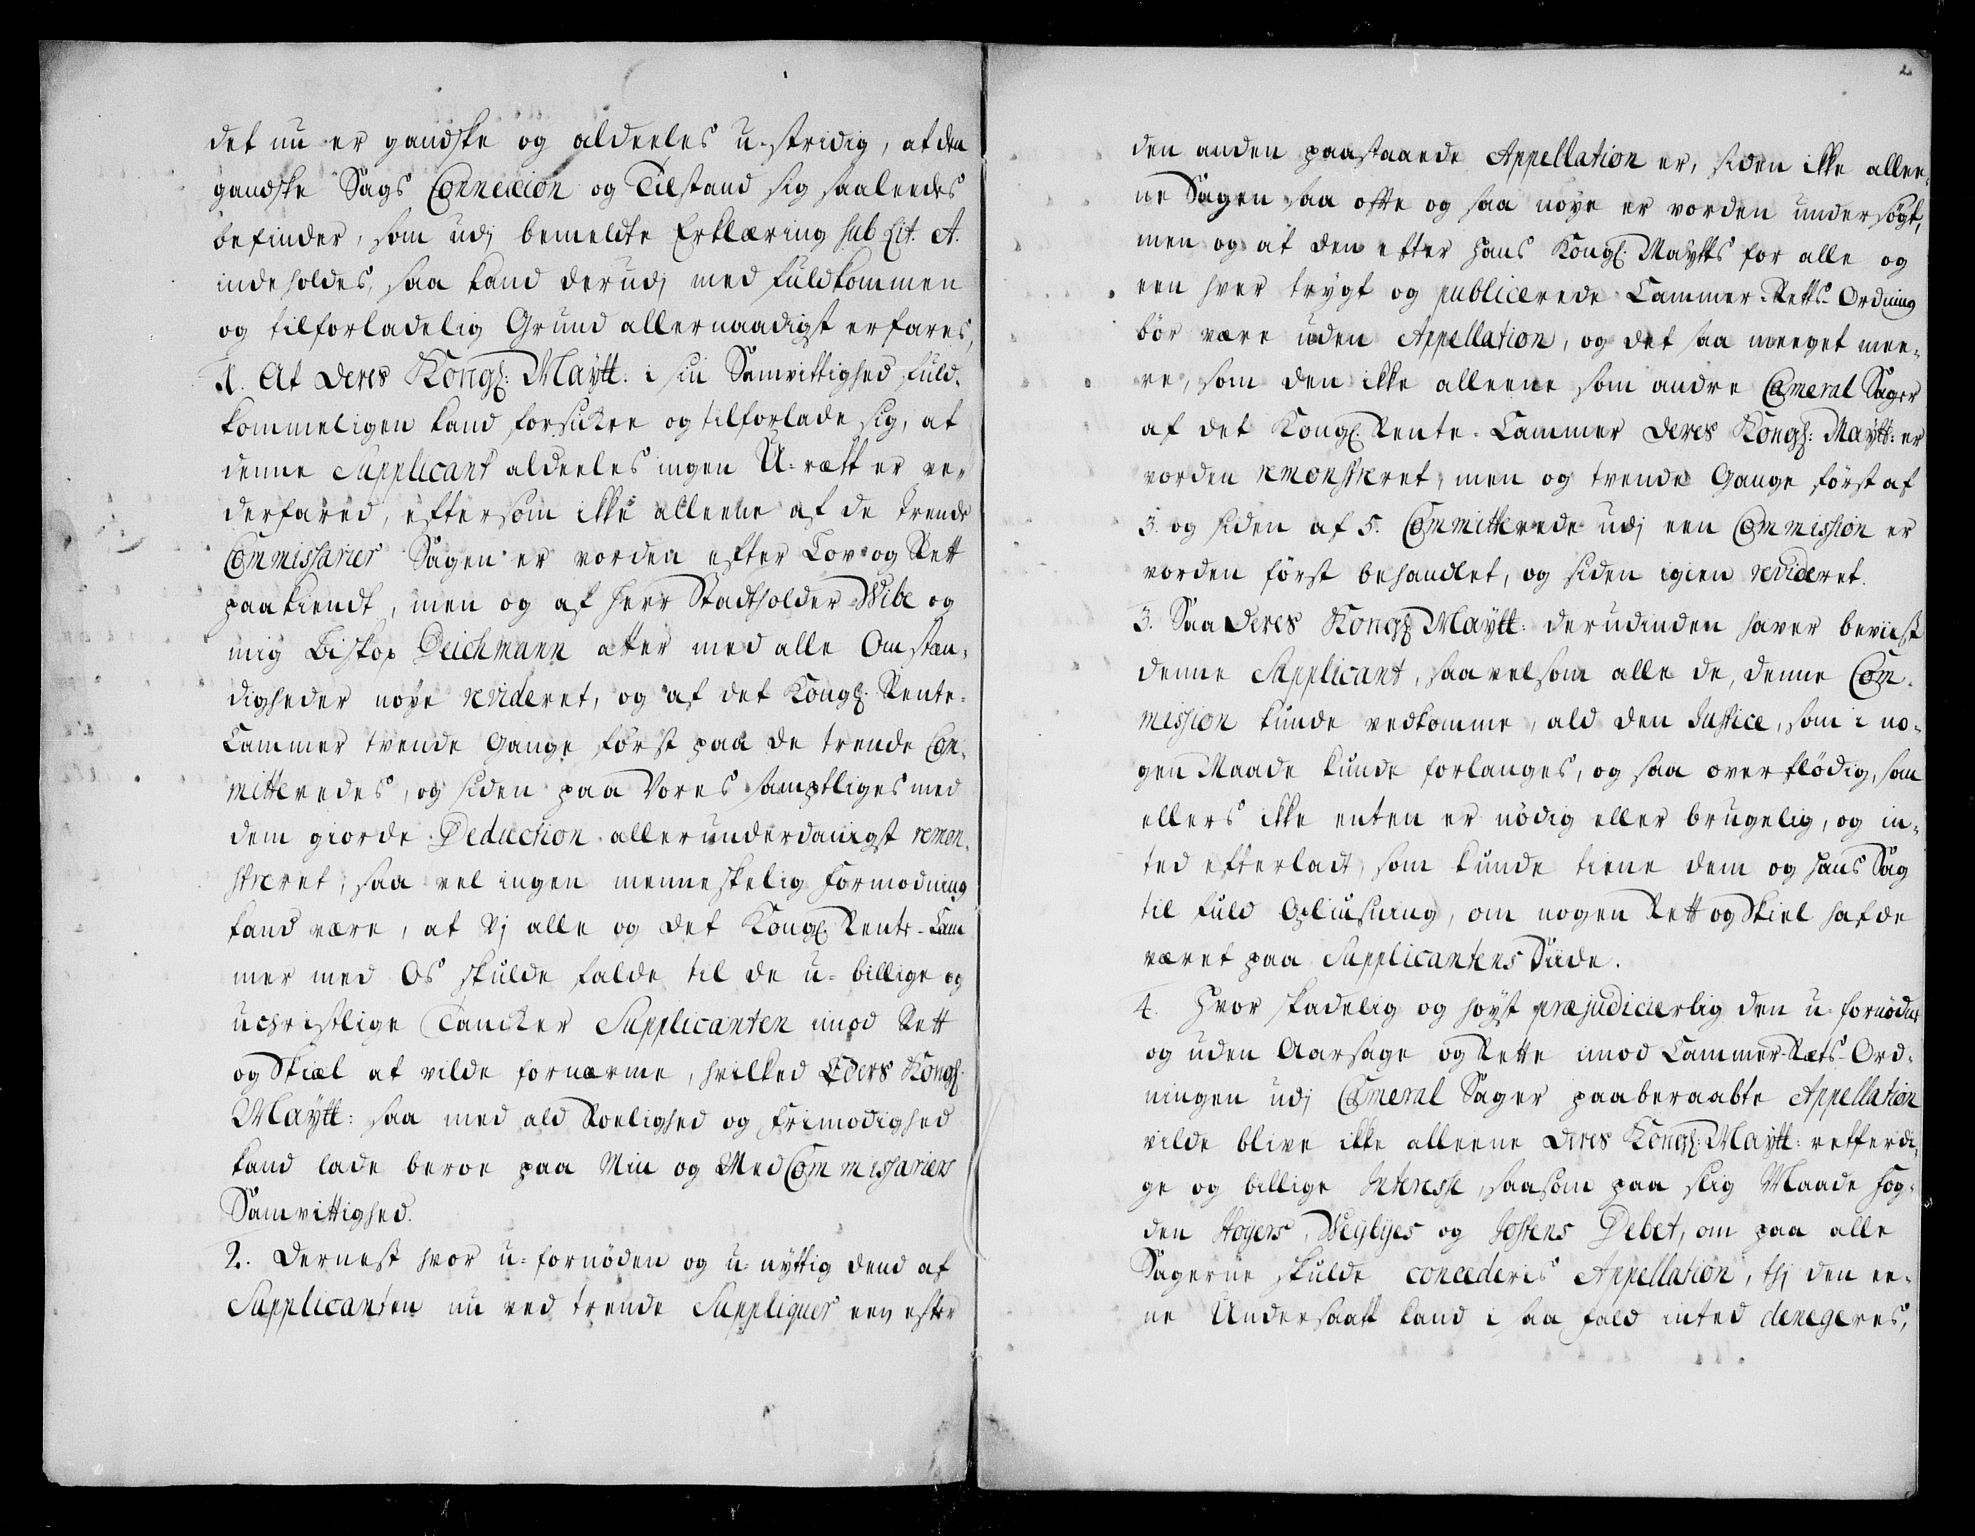 det nu er gandske og aldeeles u-stridig, at den
gandske Sags Connexion og Tilstand sig saaleedes
befinder, som udj bemeldte Erklæring sub Lit. A.
indeholdes, saa kand derudj med fuldkommen
og tilforladelig Grund allernaadigst erfares,
1. At Deres Kongl: Maytt: i sin Samvittighed fuld-
kommeligen kand forsickre og tilforlade sig, at
denne Supplicant aldeeles ingen U-rætt er ve-
derfared, eftersom ikke alleene af de trende
Commissarier Sagen er vorden efter Lov og Rett
paakiendt, men og af Herr Stadtholder Wibe og
mig Biskop Deichmann atter med alle Omstæn-
digheder nøye revideret, og af det Kongl: Rente-
Cammer tvende Gange først paa de trende Com-
mitteredes, og siden paa Vores samptliges med
dem giorde Deduction allerunderdanigst remon-
streret; saa vel ingen menneskelig Formodning
kand være, at Vj alle og det Kongl: Rente-Cam
mer med Os skulde falde til de u-billige og
uchristlige Tancker Supplicanten imod Rett
og Skiæl at vilde fornærme, hvilked Eders Kongl:
Maytt: saa med ald Roelighed og Frimodighed
kand lade beroe paa Min og Med Commissariers
Samvittighed.
2. Dernest hvor u-fornøden og u-nyttig dend af
Supplicanten nu ved trende Suppliquer een efter
2
den anden paastaaede Appellation er, siden ikke allee-
ne Sagen saa offte og saa nøye er vorden undersøgt,
men og at den efter Hans Kongl: Maytts for alle og
een hver trygt og publicerede Cammer-Retts-Ordning
bør være uden Appellation, og det saa meeget mee-
re, som den ikke alleene som andre Cameral Sager
af det Kongl: Rente-Cammer Deres Kongl: Maytt: er
vorden remonstreret, men og tvende Gange først af
3. og siden af 5. Committerede udj een Commission er
vorden først behandlet, og siden igien revideret.
3. Saa Deres Kongl: Maytt: derudinden haver beviist
denne Supplicant, saavelsom alle de, denne Com-
mission kunde vedkomme, ald den Justice, som i no-
gen Maade kunde forlanges, og saa overflødig, som
ellers ikke enten er nødig eller brugelig, og in-
ted efterladt, som kunde tiene dem og Hans Sag
til fuld Opliusning, om nogen Rett og Skiel hafde
været paa Supplicantens Siide.
4. Hvor skadelig og høyst præjudicerlig den u-fornødne
og uden Aarsage og Rette imod Cammer-Rets-Ord-
ningen udj Cameral Sager paaberaabte Appellation
vilde blive ikke alleene Deres Kongl: Maytt: retferdi-
ge og billige Interesse, saasom paa slig Maade Fog-
den Høyers, Weylyes og Jostens Debet, om paa alle
Sagerne skulde concederis Appellation, thj den ee-
ne Undersaatt kand i saa fald inted denegeres,